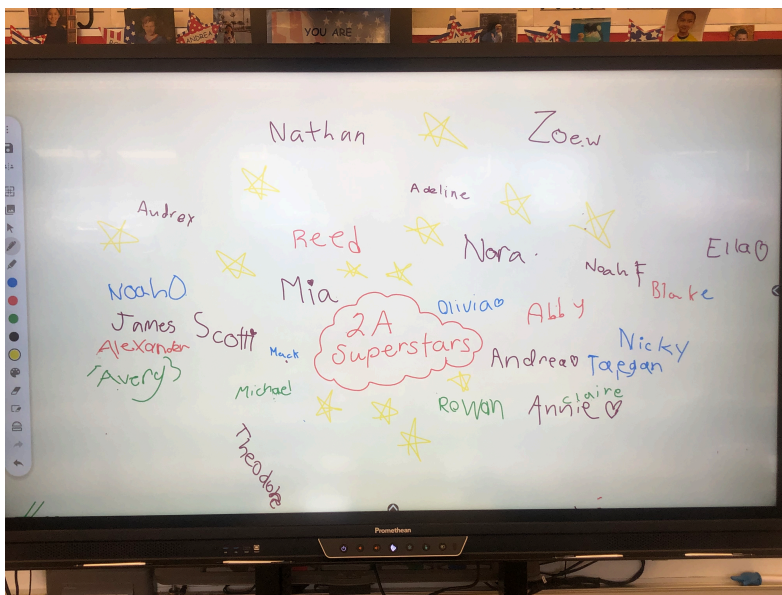 ANDREA
YOU ARE
Nathan
Zoe.w
Adeline
Audrey
Reed
Nora
Ella
Noah F
Blake
Noah O
Mia
Olivia
Abby
James
Scotti
2A
Superstars
Nicky
Alexander
Mack
Andrea
Taegan
Avery
Michael
Claire
Rowan
Annie
Theodore
Promethean